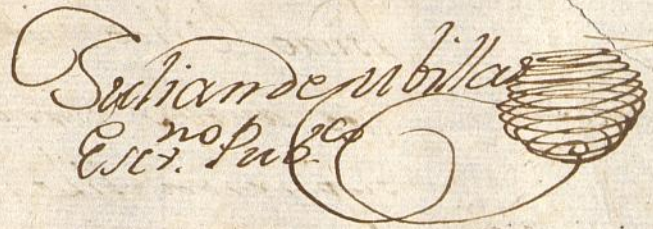 Julian de ubillas
Escr.no Pub.co